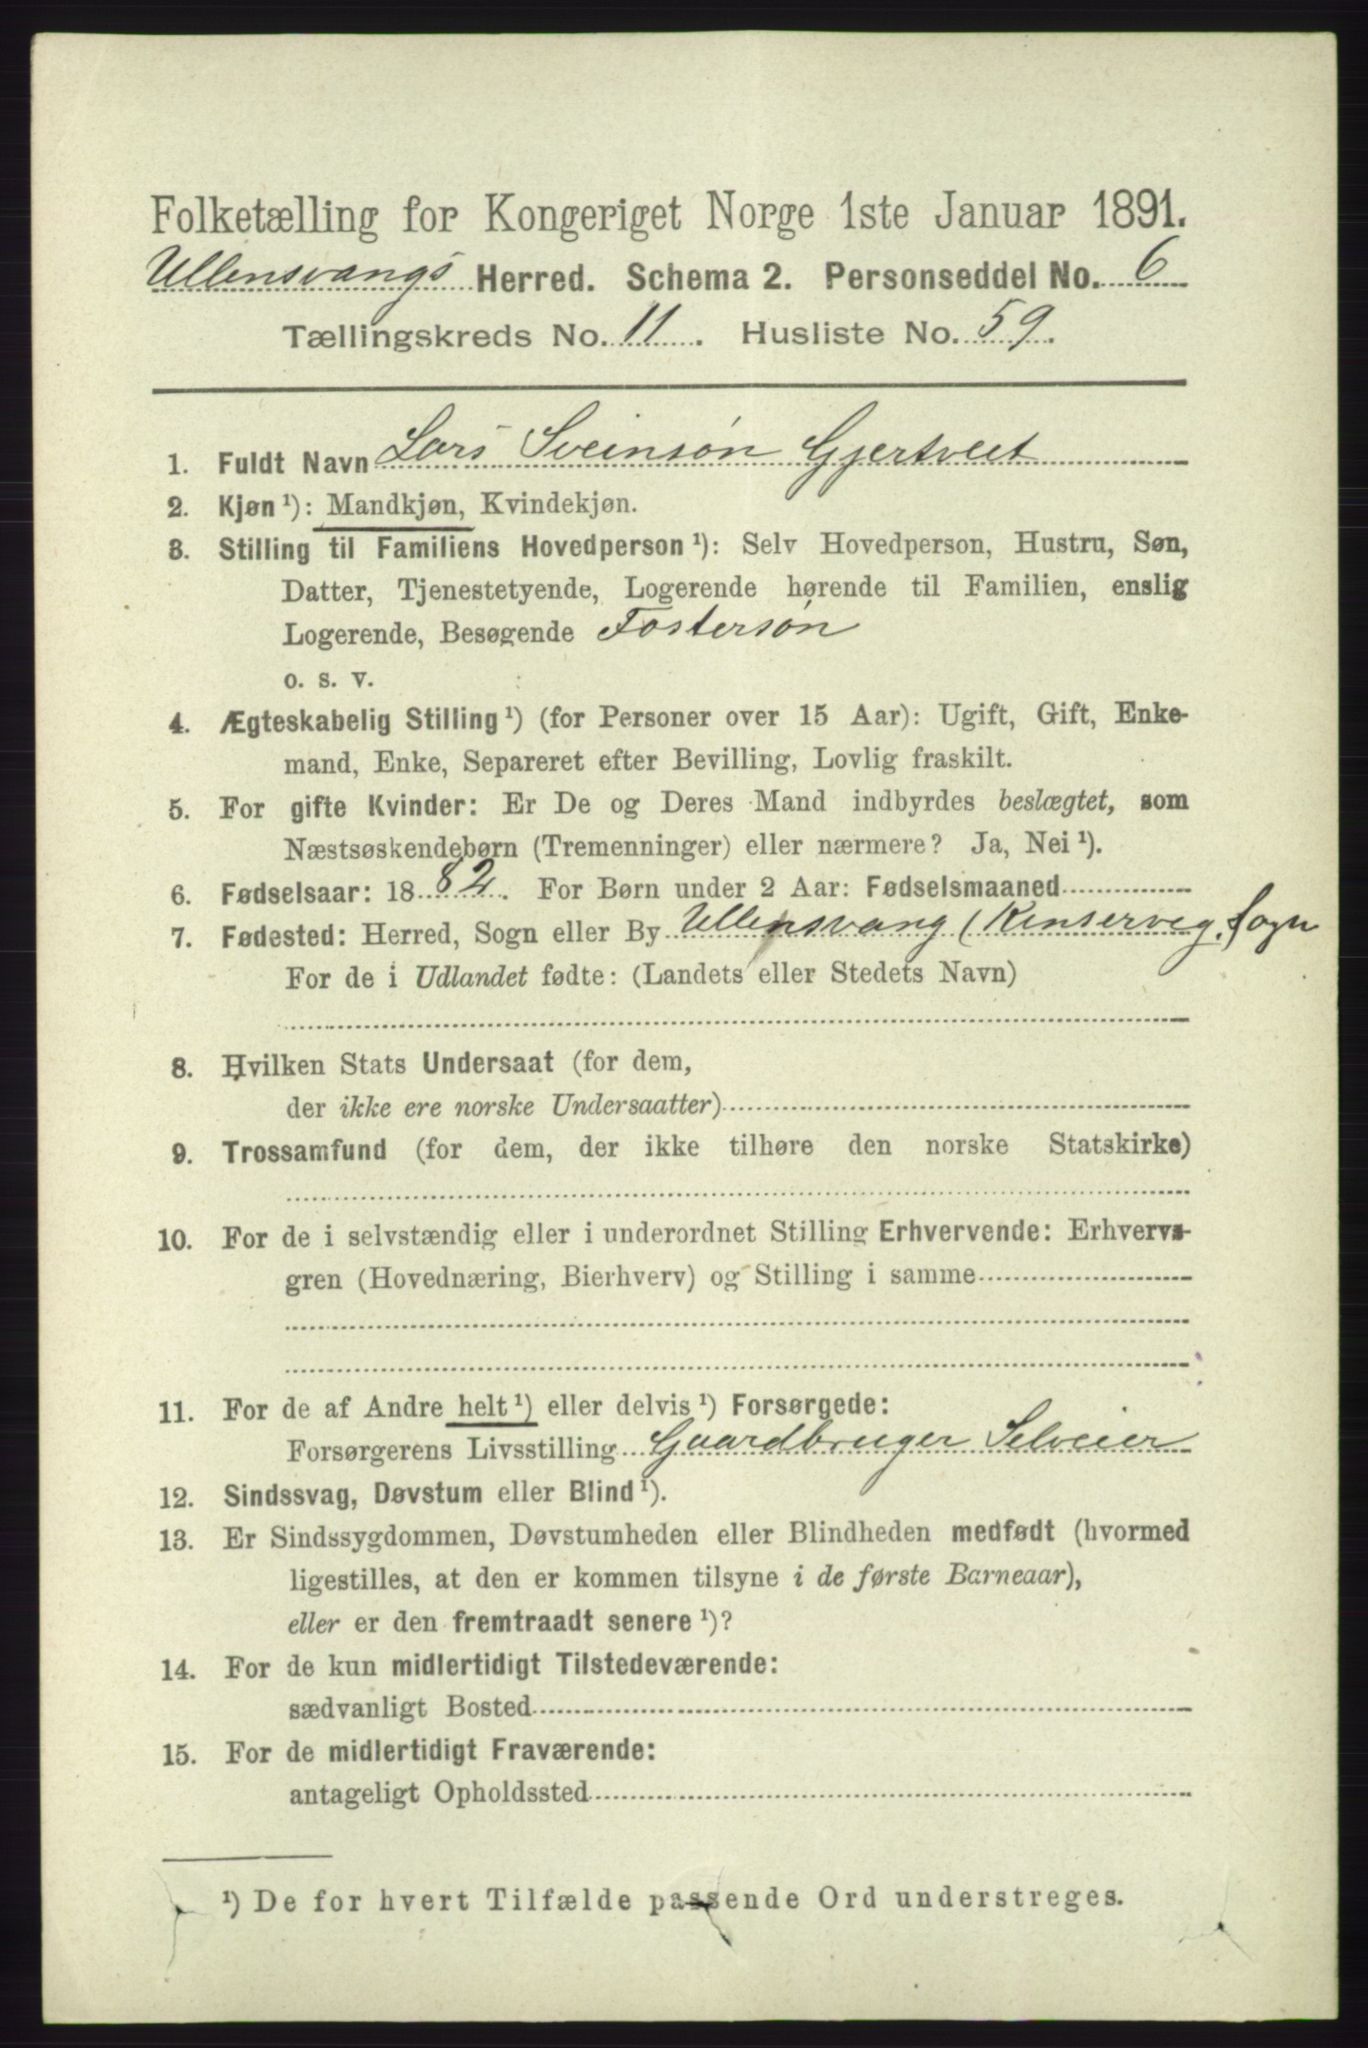 Folketælling for Kongeriget Norge 1ste Januar 1891.
Ullensvangs Herred. Schema 2. Personseddel No. 6
Tællingskreds No. 11. Husliste No. 59.
1. Fuldt Navn Lars Sveinsøn Gjertveit
2. Kjøn ¹): Mandkjøn, Kvindekjøn.
3. Stilling til Familiens Hovedperson ¹): Selv Hovedperson, Hustru, Søn,
Datter, Tjenestetyende, Logerende hørende til Familien, enslig
Logerende, Besøgende Fostersøn
o. s. v.
4. Ægteskabelig Stilling ¹) (for Personer over 15 Aar): Ugift, Gift, Enke-
mand, Enke, Separeret efter Bevilling, Lovlig fraskilt.
5. For gifte Kvinder: Er De og Deres Mand indbyrdes beslægtet, som
Næstsøskendebørn (Tremenninger) eller nærmere? Ja, Nei ¹).
6. Fødselsaar: 1882. For Børn under 2 Aar: Fødselsmaaned
7. Fødested: Herred, Sogn eller By Ullensvang (Kinserveg. Sogn
For de i Udlandet fødte: (Landets eller Stedets Navn)
8. Hvilken Stats Undersaat (for dem,
der ikke ere norske Undersaatter)
9. Trossamfund (for dem, der ikke tilhøre den norske Statskirke)
10. For de i selvstændig eller i underordnet Stilling Erhvervende: Erhvervs-
gren (Hovednæring, Bierhverv) og Stilling i samme
11. For de af Andre helt ¹) eller delvis ¹) Forsørgede:
Forsørgerens Livsstilling Gaardbruger Selveier
12. Sindssvag, Døvstum eller Blind ¹).
13. Er Sindssygdommen, Døvstumheden eller Blindheden medfødt (hvormed
ligestilles, at den er kommen tilsyne i de første Barneaar),
eller er den fremtraadt senere ¹)?
14. For de kun midlertidigt Tilstedeværende:
sædvanligt Bosted
15. For de midlertidigt Fraværende:
antageligt Opholdssted
¹) De for hvert Tilfælde passende Ord understreges.